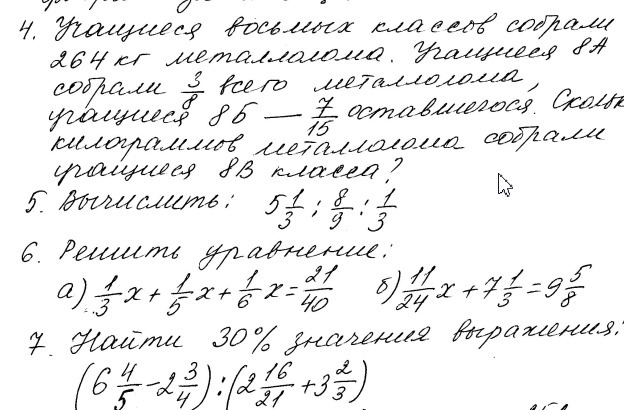 4. Учащиеся восьмых классов собрали
264 кг металлолома. Учащиеся 8А
собрали 3/8 всего металлолома,
учащиеся 8Б — 7/15 оставшегося. Сколь
килограммов металлолома собрали
учащиеся 8В класса?
5. Вычислить: 5 1/3 : 8/9 : 1/3
6. Решить уравнение:
а) 1/3 x + 1/5 x + 1/6 x = 21/40 б) 11/24 x + 7 1/3 = 9 5/8
7. Найти 30% значения выражения:
(6 4/5 - 2 3/4) : (2 16/21 + 3 2/3)